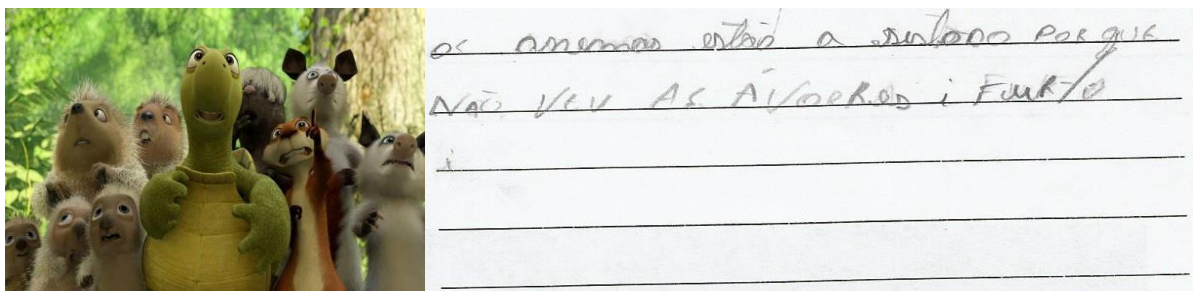 os anemas estão a sustado por que
Não veu as Ávoeros i Furto
i